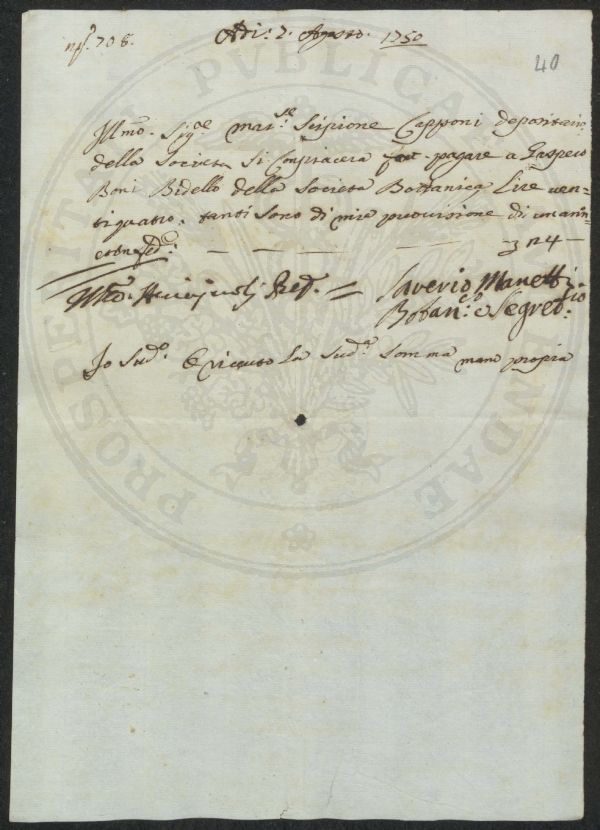 Adi: 2. Agosto. 1750
40
Illmo. Sigre. Marse. Scipione Capponi depositario
della Società si compiacerà far pagare a Gaspero
Boni Bidello della Società Bottanica Lire ven=
tiquatro. tanti sono di mia provisione di un anno
24 —
Saverio Manetti
Botanco. e Segretrio:
Io Sudo. ò ricevuto la Suda. Somma mano propria
PROSPERITATI PVBLICAE AVGENDAE